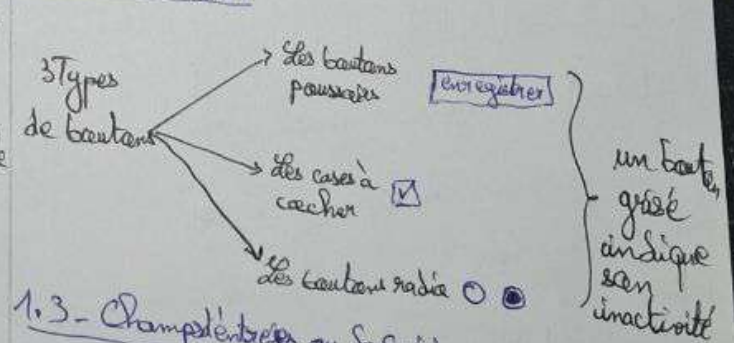 3 Types
de boutons
Les boutons
poussoirs
enregistrer
Les cases à
cocher
Les boutons radio
un bouton
grisé
indique
son
inactivité
1.3 - Champs d'entrées ou